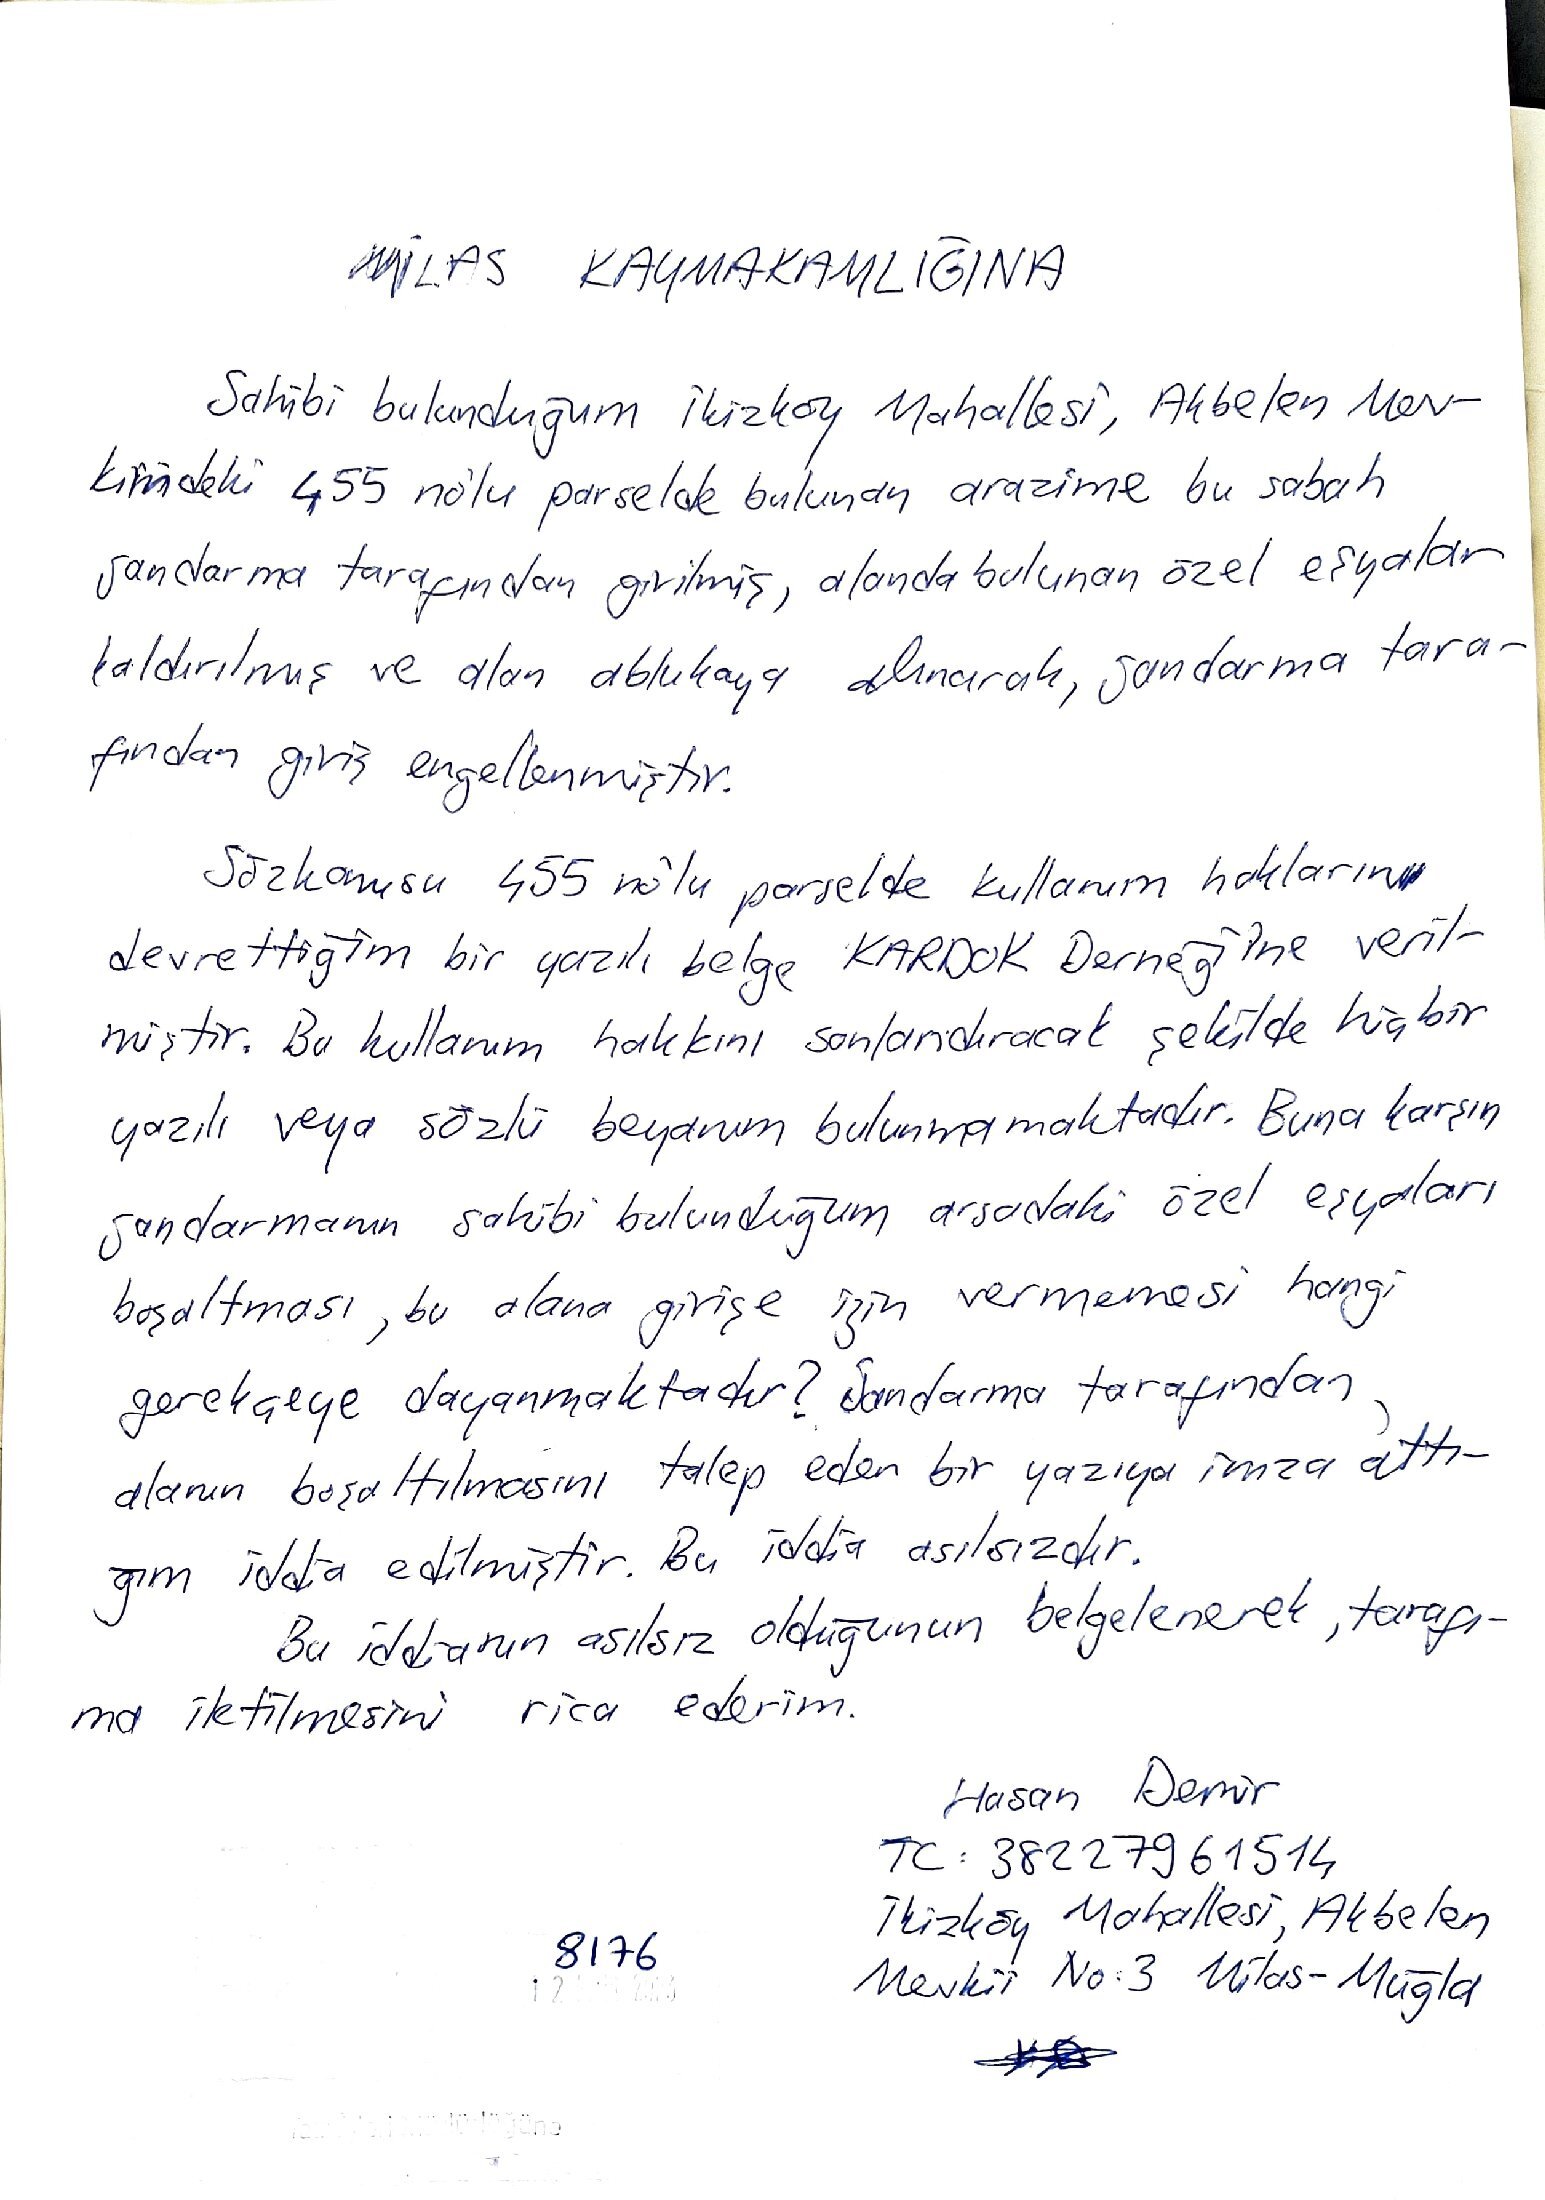 MİLAS KAYMAKAMLIĞINA
Sahibi bulunduğum İkizköy Mahallesi, Akbelen Mev-
kiindeki 455 no'lu parselde bulunan arazime bu sabah
jandarma tarafından girilmiş, alanda bulunan özel eşyalar
kaldırılmış ve alan ablukaya alınarak, jandarma tara-
fından giriş engellenmiştir.
Sözkonusu 455 no'lu parselde kullanım haklarını
devrettiğim bir yazılı belge KARDOK Derneği'ne veril-
miştir. Bu kullanım hakkını sonlandıracak şekilde hiçbir
yazılı veya sözlü beyanım bulunmamaktadır. Buna karşın
jandarmanın sahibi bulunduğum arsadaki özel eşyaları
boşaltması, bu alana girişe izin vermemesi hangi
gerekçeye dayanmaktadır? Jandarma tarafından,
alanın boşaltılmasını talep eden bir yazıya imza attı-
ğım iddia edilmiştir. Bu iddia asılsızdır.
Bu iddianın asılsız olduğunun belgelenerek, tarafı-
ma iletilmesini rica ederim.
Hasan Demir
TC: 38227961514
İkizköy Mahallesi, Akbelen
Mevkii No:3 Milas-Muğla
8176